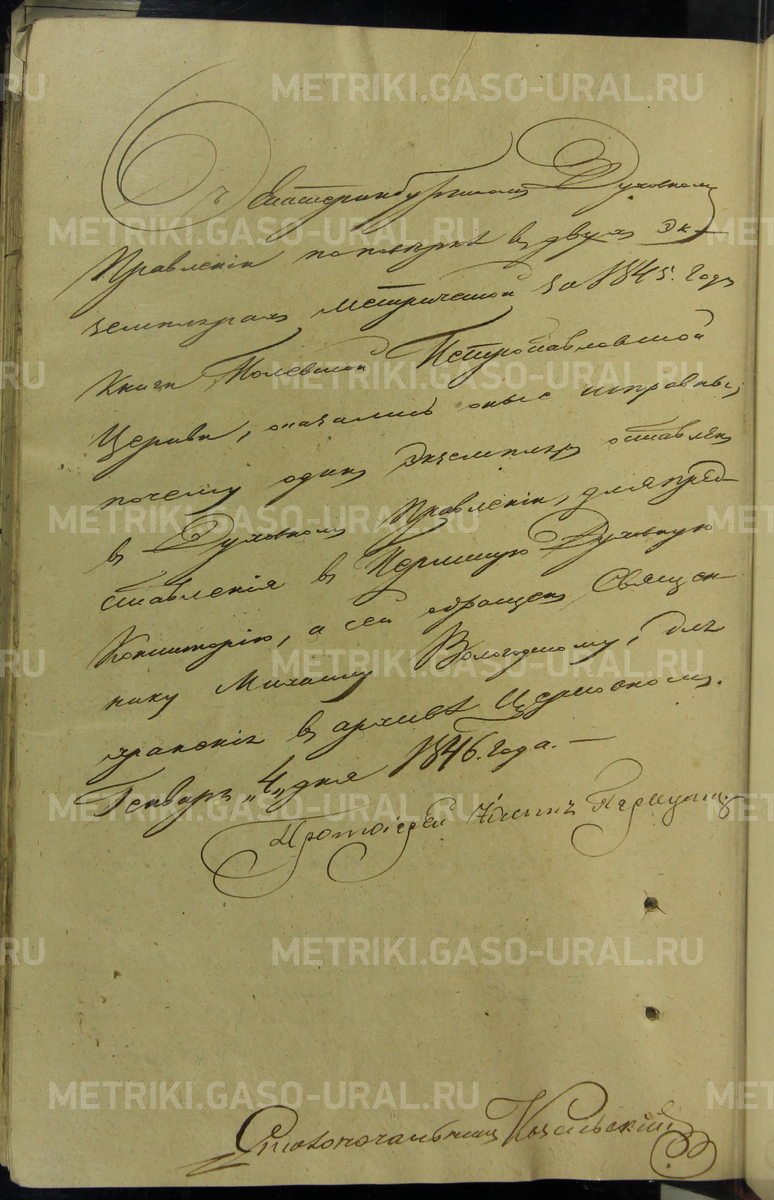 Въ Екатеринбургскомъ Духовномъ
Правленіи по повѣркѣ въ двухъ Эк-
земплярахъ Метрической за 1845. Годъ
Книги Полевской Петропавловской
Церкви, оказались оныѣ исправны;
почему одинъ Экземпляръ оставленъ
въ Духовномъ Правленіи, для пред-
ставленія въ Пермскую Духовную
Консисторію, а сей обращенъ Священ-
нику Михаилу Вологодскому, для
храненія въ архивѣ Церковномъ.
Генваря „4„ дня 1846. Года. —
Протоіерей
Столоначальникъ
METRIKI.GASO-URAL.RU